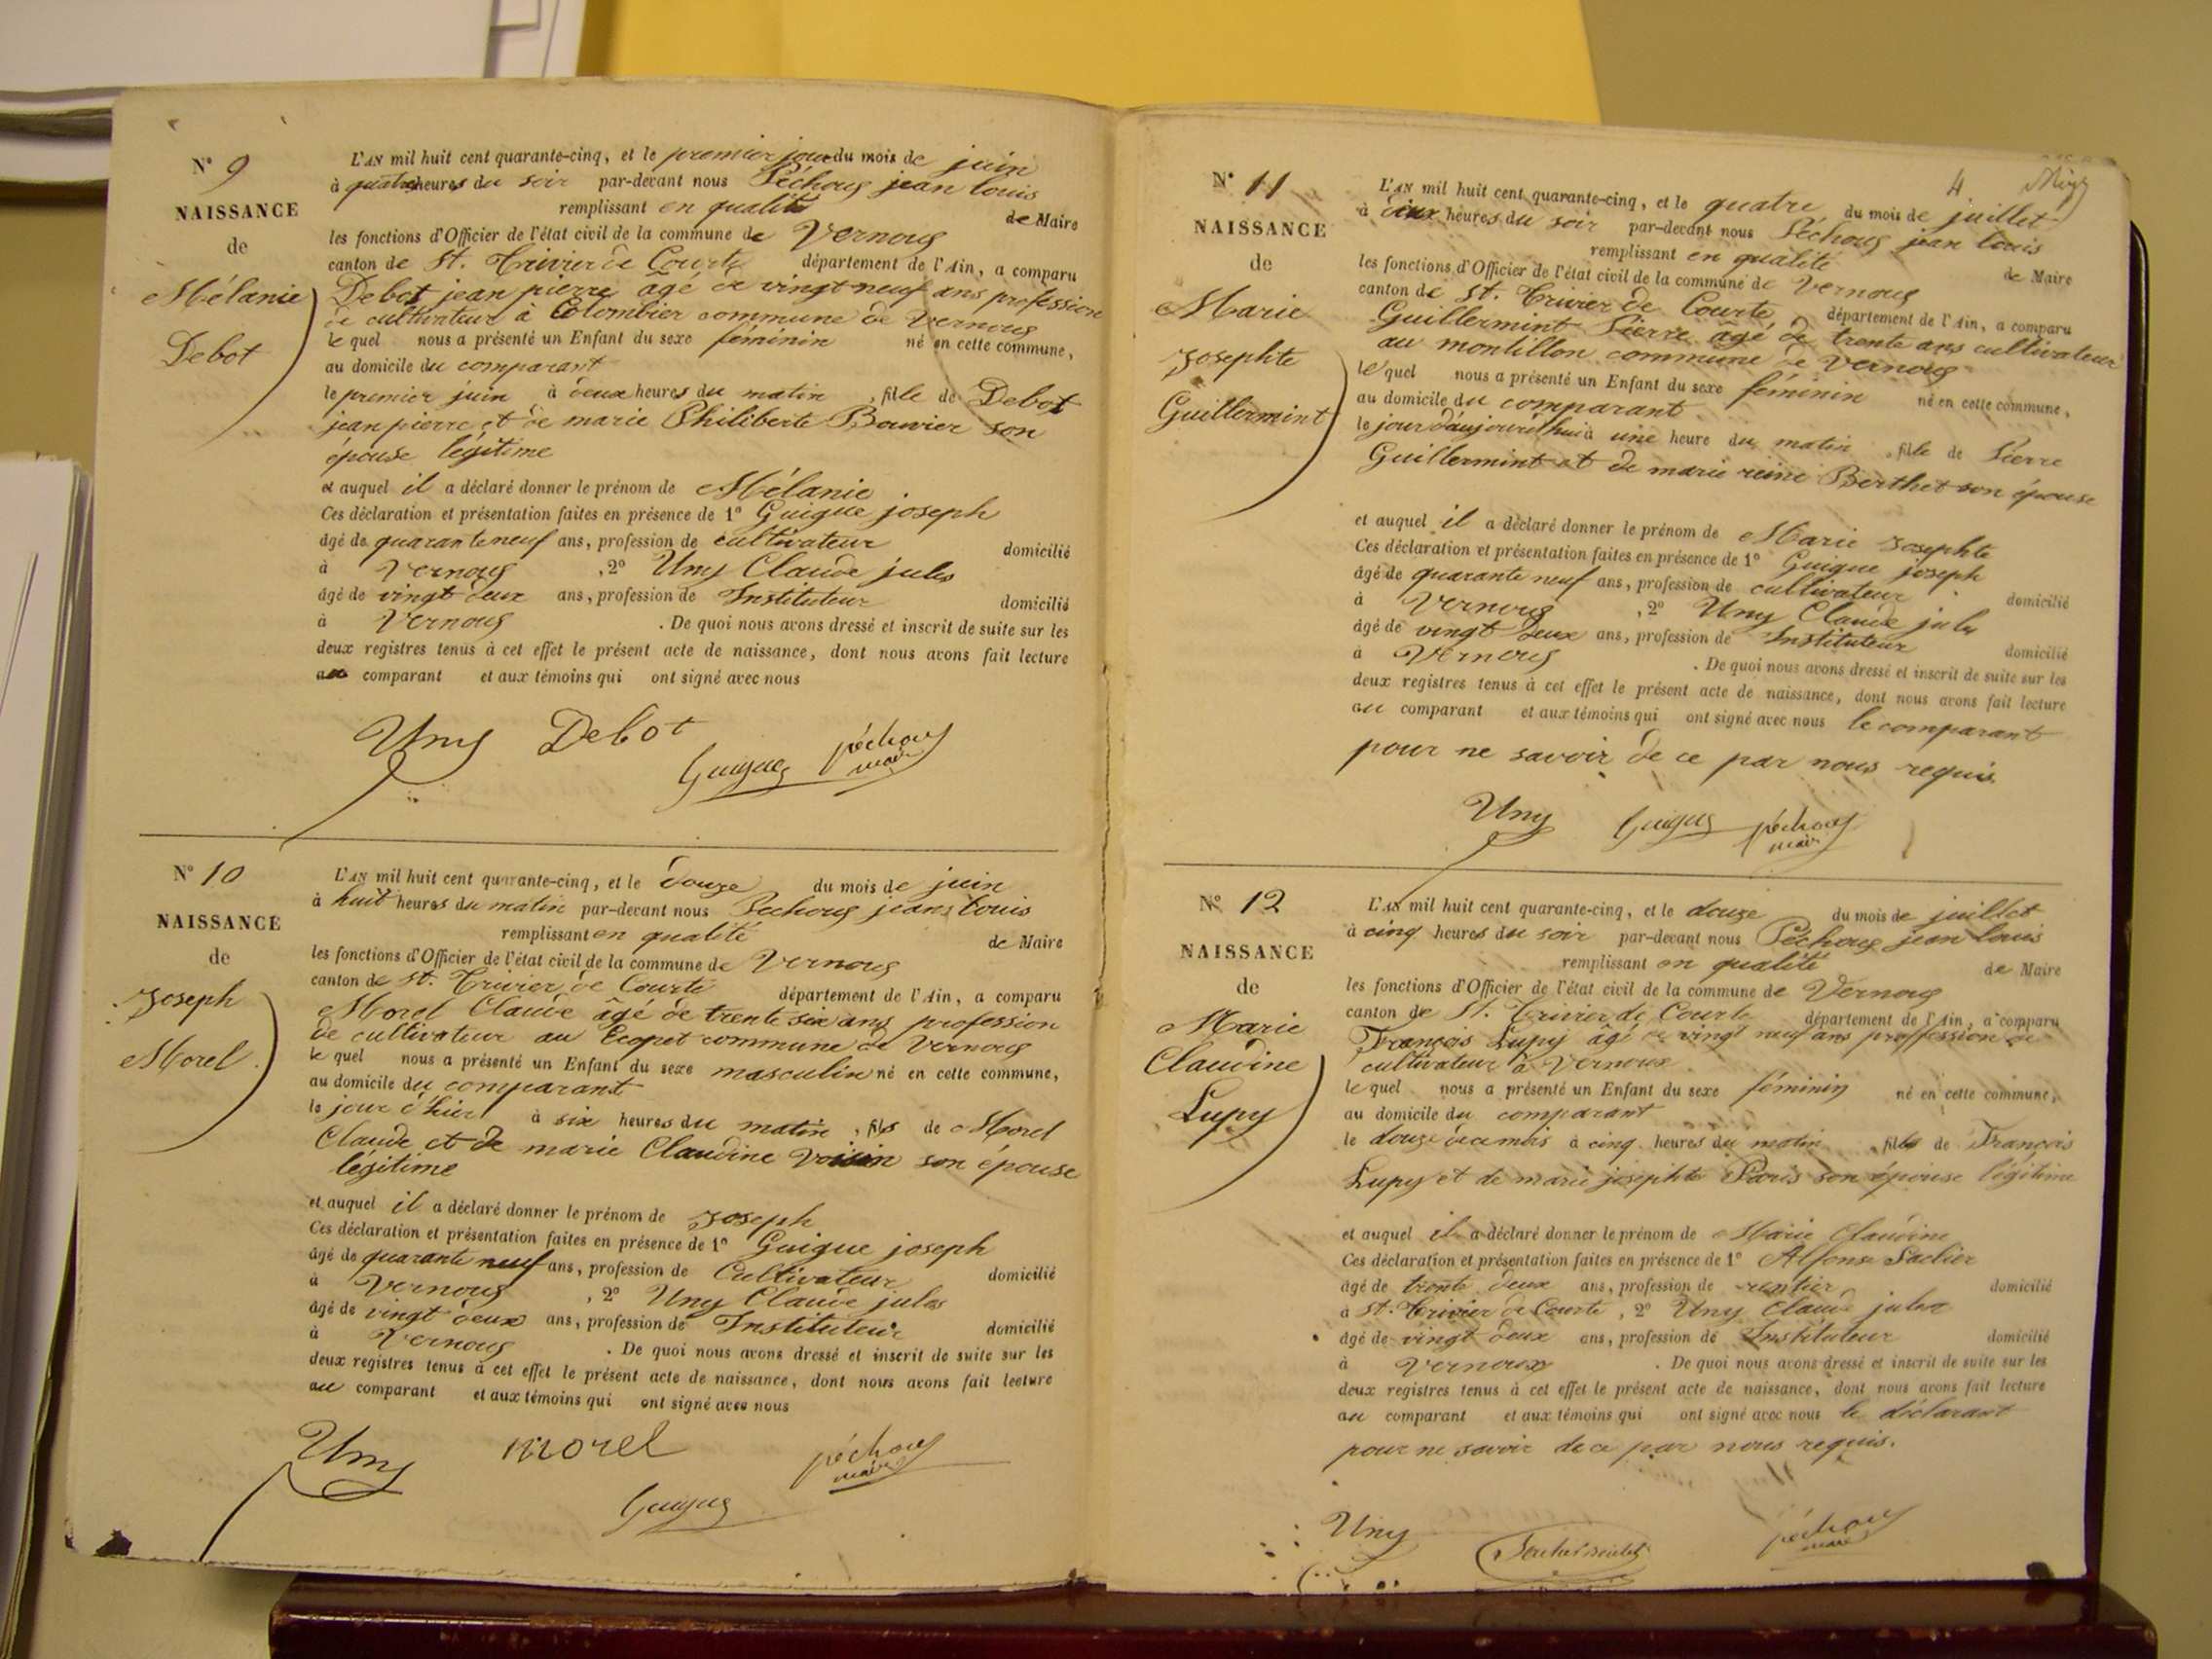 N° 9
NAISSANCE
de
Mélanie
Debot
L'AN mil huit cent quarante-cinq, et le premier jour du mois de juin
à quatre heures du soir par-devant nous Péchoug jean louis
remplissant en qualité de Maire
les fonctions d'Officier de l'état civil de la commune de Vernoug
canton de St. Trivier de Courte département de l'Ain, a comparu
Debot jean pierre âgé de vingt neuf ans profession
de cultivateur à Colombier commune de Vernoug
le quel nous a présenté un Enfant du sexe féminin né en cette commune,
au domicile du comparant
le premier juin à deux heures du matin, fille de Debot
jean pierre et de marie Philiberte Bouvier son
épouse légitime
et auquel il a déclaré donner le prénom de Mélanie
Ces déclaration et présentation faites en présence de 1° Guigue joseph
âgé de quarante neuf ans, profession de cultivateur domicilié
à Vernoug , 2° Uny Claude jules
âgé de vingt deux ans, profession de Instituteur domicilié
à Vernoug . De quoi nous avons dressé et inscrit de suite sur les
deux registres tenus à cet effet le présent acte de naissance, dont nous avons fait lecture
au comparant et aux témoins qui ont signé avec nous
Uny Debot
Guigue péchoug
maire
N° 10
NAISSANCE
de
Joseph
Morel
L'AN mil huit cent quarante-cinq, et le douze du mois de juin
à huit heures du matin par-devant nous Péchoug jean Louis
remplissant en qualité de Maire
les fonctions d'Officier de l'état civil de la commune de Vernoug
canton de St. Trivier de Courte département de l'Ain, a comparu
Morel Claude âgé de trente six ans profession
de cultivateur au Ecopet commune de Vernoug
le quel nous a présenté un Enfant du sexe masculin né en cette commune,
au domicile du comparant
le jour d'hier à six heures du matin, fils de Morel
Claude et de marie Claudine Voisin son épouse
légitime
et auquel il a déclaré donner le prénom de Joseph
Ces déclaration et présentation faites en présence de 1° Guigue joseph
âgé de quarante neuf ans, profession de Cultivateur domicilié
à Vernoug , 2° Uny Claude jules
âgé de vingt deux ans, profession de Instituteur domicilié
à Vernoug . De quoi nous avons dressé et inscrit de suite sur les
deux registres tenus à cet effet le présent acte de naissance, dont nous avons fait lecture
au comparant et aux témoins qui ont signé avec nous
Uny morel péchoug
maire
Guigue
4
N° 11
NAISSANCE
de
Marie
Josephte
Guillermint
L'AN mil huit cent quarante-cinq, et le quatre du mois de juillet
à deux heures du soir par-devant nous Péchoug jean louis
remplissant en qualité de Maire
les fonctions d'Officier de l'état civil de la commune de Vernoug
canton de St. Trivier de Courte département de l'Ain, a comparu
Guillermint Pierre âgé de trente ans cultivateur
au montillon commune de Vernoug
le quel nous a présenté un Enfant du sexe féminin né en cette commune,
au domicile du comparant
le jour d'aujourd'hui à une heure du matin, fille de Pierre
Guillermint et de marie reine Berthet son épouse
et auquel il a déclaré donner le prénom de Marie Josephte
Ces déclaration et présentation faites en présence de 1° Guigue joseph
âgé de quarante neuf ans, profession de cultivateur domicilié
à Vernoug , 2° Uny Claude jules
âgé de vingt deux ans, profession de Instituteur domicilié
à Vernoug . De quoi nous avons dressé et inscrit de suite sur les
deux registres tenus à cet effet le présent acte de naissance, dont nous avons fait lecture
au comparant et aux témoins qui ont signé avec nous le comparant
pour ne savoir de ce par nous requis
Uny Guigue péchoug
maire
N° 12
NAISSANCE
de
Marie
Claudine
Lupy
L'AN mil huit cent quarante-cinq, et le douze du mois de juillet
à cinq heures du soir par-devant nous Péchoug jean Louis
remplissant en qualité de Maire
les fonctions d'Officier de l'état civil de la commune de Vernoug
canton de St. Trivier de Courte département de l'Ain, a comparu
François Lupy âgé de vingt neuf ans proffession de
cultivateur à Vernoux
le quel nous a présenté un Enfant du sexe féminin né en cette commune,
au domicile du comparant
le douze de ce mois à cinq heures du matin, fille de François
Lupy et de marie josephte Paris son épouse légitime
et auquel il a déclaré donner le prénom de Marie Claudine
Ces déclaration et présentation faites en présence de 1° Alfonse
âgé de trente deux ans, profession de rentier domicilié
à St. Trivier de Courte, 2° Uny Claude jules
âgé de vingt deux ans, profession de Instituteur domicilié
à Vernoux . De quoi nous avons dressé et inscrit de suite sur les
deux registres tenus à cet effet le présent acte de naissance, dont nous avons fait lecture
au comparant et aux témoins qui ont signé avec nous le déclarant
pour ne savoir de ce par nous requis.
Uny péchoug
maire